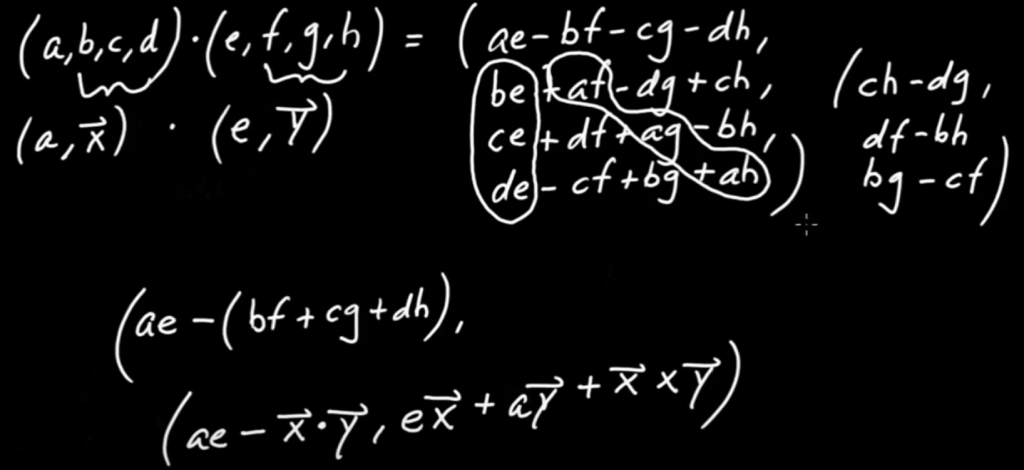 (a,b,c,d)·(e,f,g,h) = (ae-bf-cg-dh,
be+af-dg+ch,
ce+df+ag-bh,
de-cf+bg+ah)
(ch-dg,
df-bh
bg-cf)
(a,x⃗) · (e,y⃗)
(ae-(bf+cg+dh),
(ae-x⃗·y⃗, ex⃗+ay⃗+x⃗×y⃗)